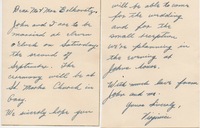 Dear Mr & Mrs
John and I are to be
married at eleven
o'clock on Saturday
the second of
September. The
ceremony will be at
St Marks Church in
We sincerely hope you
will be able to come
for the wedding
and for the
small reception
we're planning in
the evening at
John's
With much love from
John and me.
Yours
Virginia